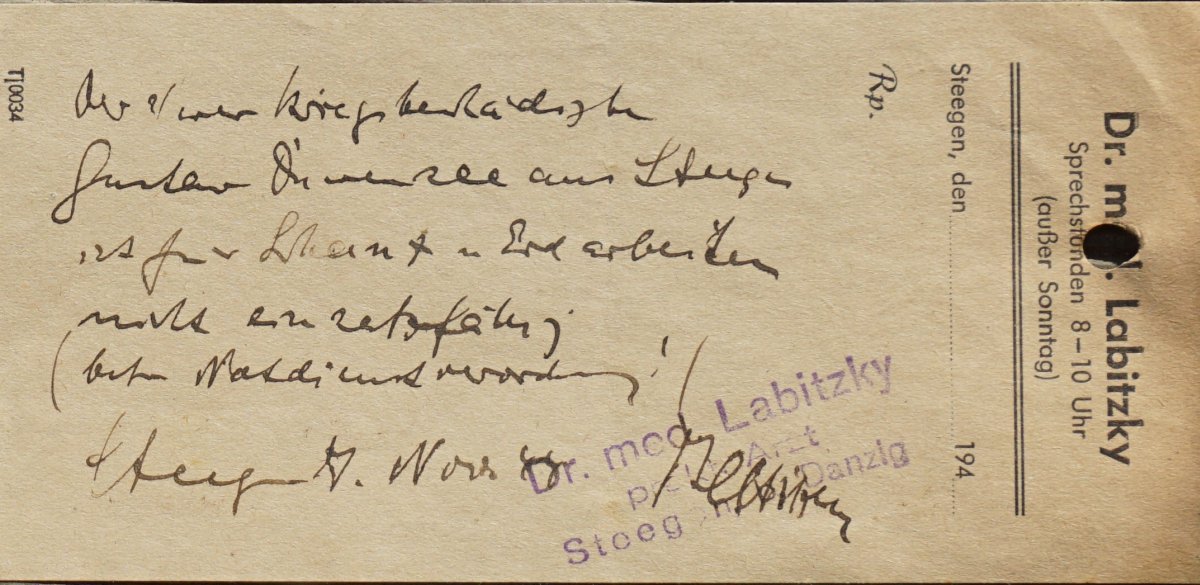 Dr. med. Labitzky
Sprechstunden 8–10 Uhr
(außer Sonntag)
Steegen, den 194
Rp.
Der schwer kriegsbeschädigte
Gustav aus Steegen
ist für Schanz u Erdarbeiten
nicht einsatzfähig
(betr. Notdienstverordnung!)
Steegen Nov.
Dr. med. Labitzky
prakt. Arzt
Steegen Danzig
Tj0034